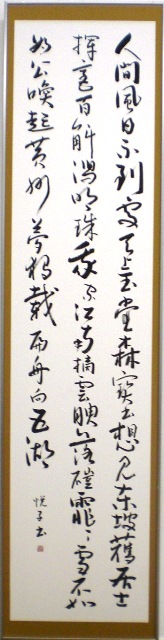 人間風日不到處天上玉堂森寶書想見東坡舊居士
揮毫百斛瀉明珠我家江南摘雲腴落磑霏霏雪不如
為公喚起黃州夢獨載扁舟向五湖
悦子書